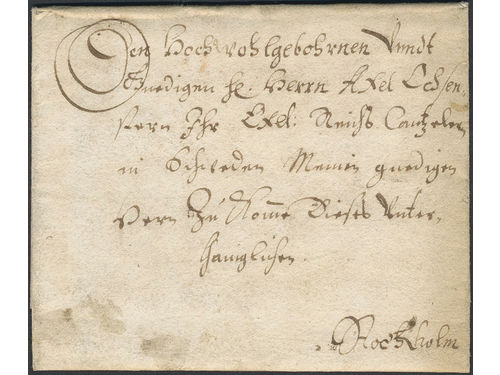 Den Hochwohlgebohrnen Vundt
Gnedigen he. Herrn Axel Ochsen-
stern Ihr Exel: Reichs Cantzelern
in Schweden Meinen gnedigen
Hern Zu Komme Dieses Unter-
thaniglichen.
Stockholm